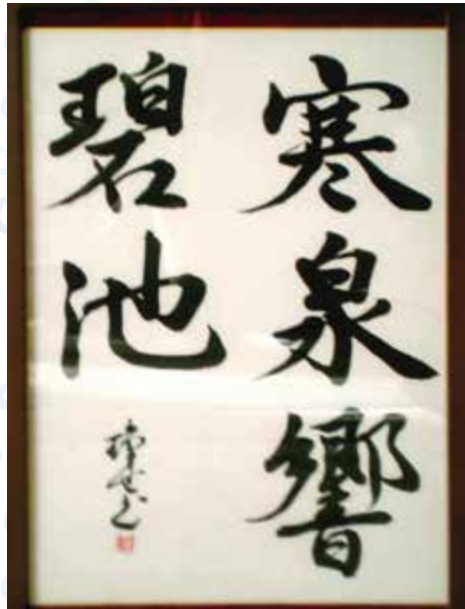 寒泉響
碧池